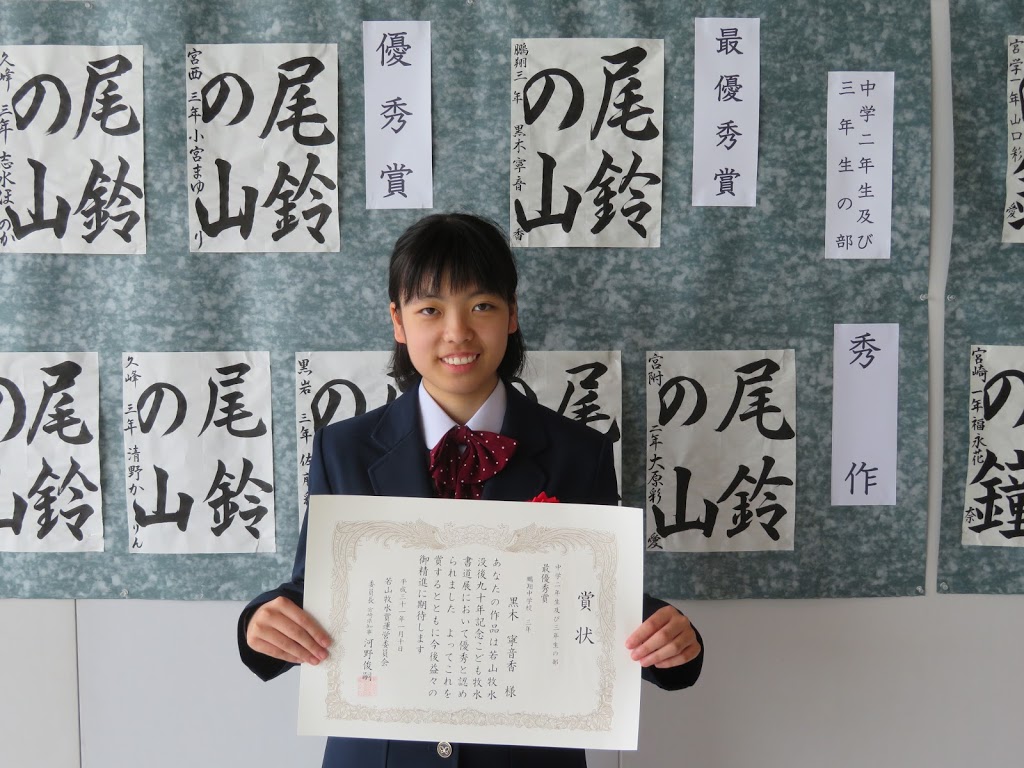 中学二年生及び
三年生の部
最優秀賞
尾鈴
の山
鵬翔三年 黒木寧音香
優秀賞
尾鈴
の山
宮西 三年 小宮まゆり
尾鈴
の山
久峰 三年 志水ほのか
宮学一年 山口彩愛
秀作
尾鈴
の山
宮附 二年 大原彩愛
尾
の
黒岩 三年 佐
尾鈴
の山
久峰 三年 清野かりん
尾鈴
の山
宮崎一年 福永花奈
鐘
賞状
中学二年生及び三年生の部
最優秀賞
鵬翔中学校 三年
黒木 寧音香 様
あなたの作品は若山牧水
没後九十年記念こども牧水
書道展において優秀と認め
られました よってこれを
賞するとともに今後益々の
御精進に期待します
平成三十一年一月十日
若山牧水賞運営委員会
委員長 宮崎県知事 河野俊嗣